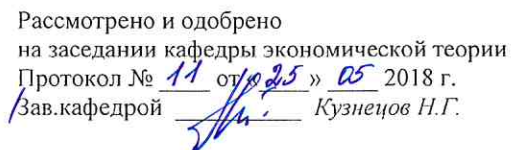 Рассмотрено и одобрено
на заседании кафедры экономической теории
Протокол № 11 от «25» 05 2018 г.
Зав.кафедрой Кузнецов Н.Г.